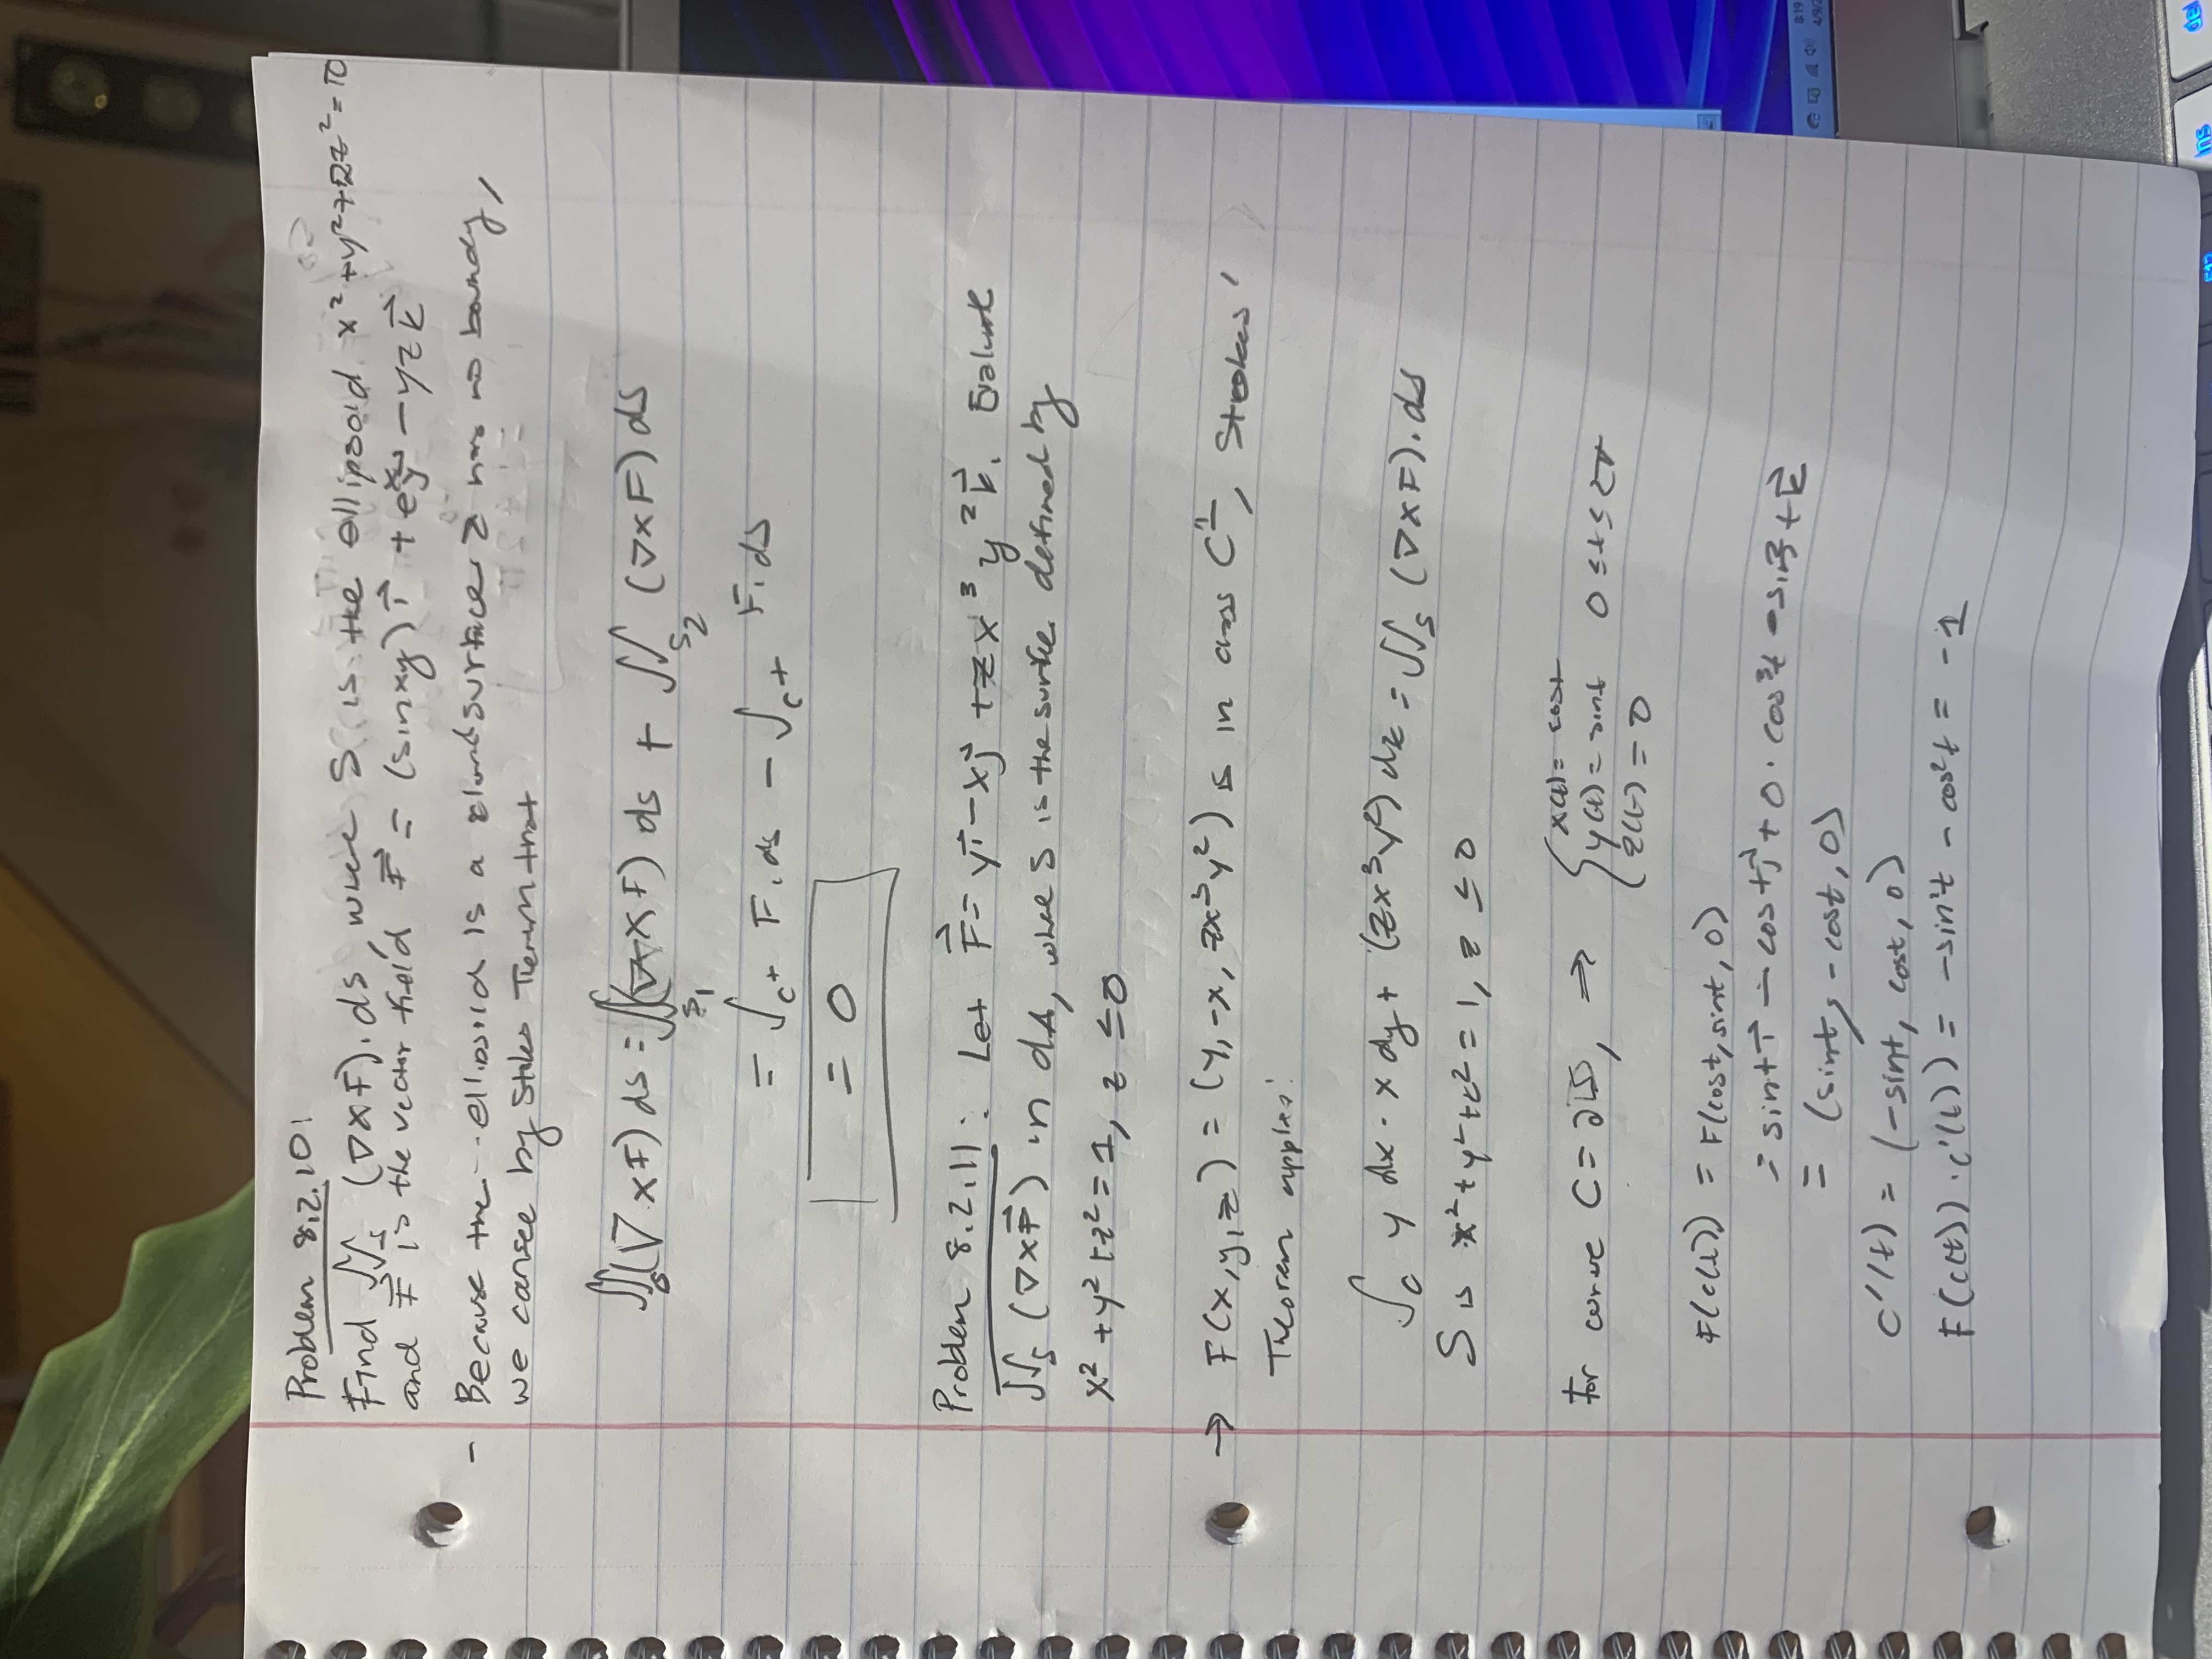 Problem 8.2.10:
Find ∬_S (∇×F)·ds, where S is the ellipsoid x²+y²+2z²=10
and F⃗ is the vector field F⃗ = (sinxy)i⃗ + e^x j⃗ - yz k⃗
- Because the ellipsoid is a closed surface & has no boundy,
we can see by Stokes Theorem that
∬_S (∇×F) ds = ∬_S₁ (∇×F) ds + ∬_S₂ (∇×F) ds
= ∫_C+ F·ds - ∫_C+ F·ds
= 0
Problem 8.2.11: Let F⃗ = yi⃗ - xj⃗ + zx³y²k⃗. Evaluate
∬_S (∇×F⃗) in dA, where S is the surface defined by
x²+y²+z²=1, z ≤0
→ F(x,y,z) = (y,-x, zx³y²) is in class C¹, Strokes'
Theorem applies:
∫_C y dx - x dy + (zx³y²) dz = ∬_S (∇×F)·ds
S is x²+y²+z²=1, z ≤ 0
For curve C=∂S, ⇒ { x(t)= cost
y(t) = sint 0≤t≤2π
z(t) = 0
F(c(t)) = F(cost, sint, 0)
= sint i⃗ - cost j⃗ + 0·cos³t sin²t k⃗
= (sint, -cost, 0)
c'(t) = (-sint, cost, 0)
F(c(t))·c'(t)) = -sin²t - cos²t = -1
8:19
4/9/2
ins
del